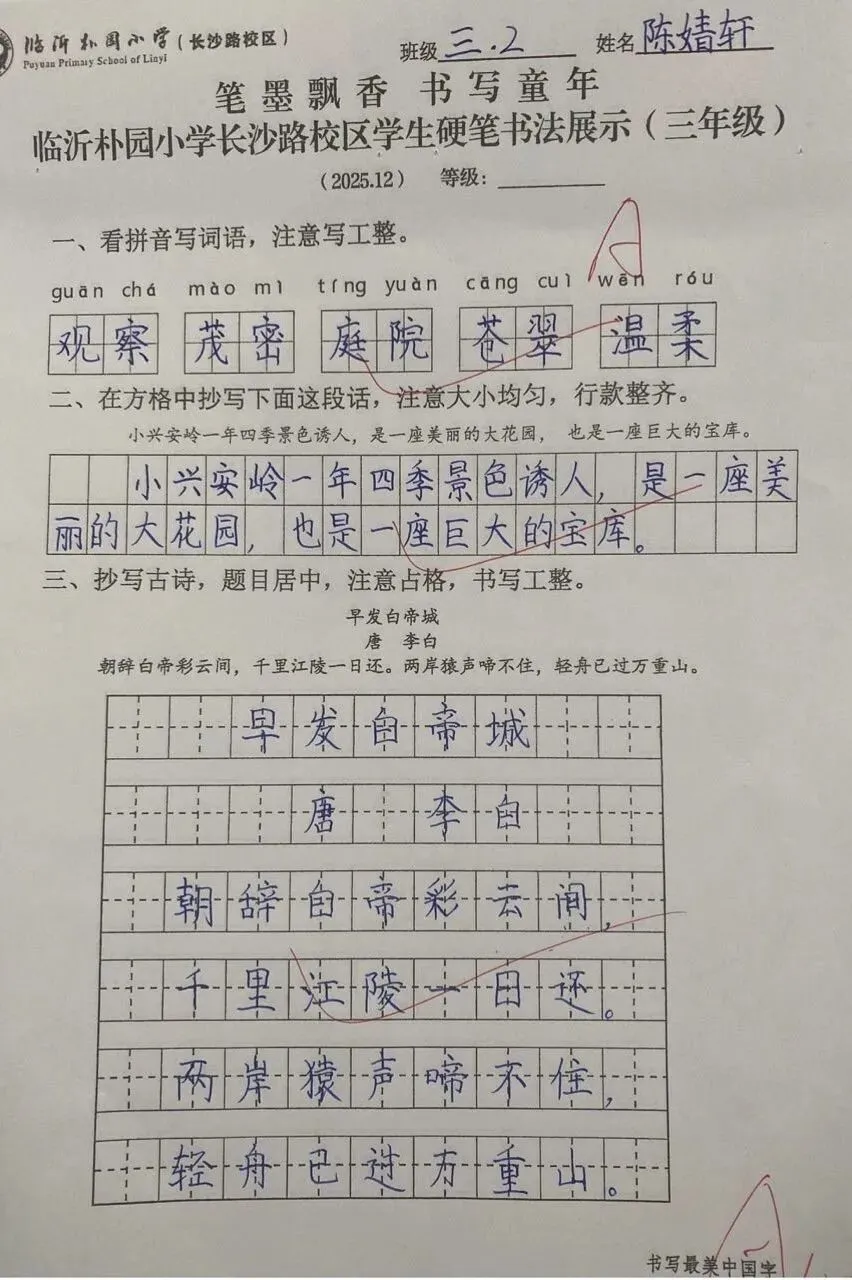 临沂朴园小学（长沙路校区）
Puyuan Primary School of Linyi
班级 三.2 姓名 陈婧轩
笔墨飘香 书写童年
临沂朴园小学长沙路校区学生硬笔书法展示（三年级）
（2025.12） 等级：
A
一、看拼音写词语，注意写工整。
guān chá mào mì tíng yuàn cāng cuì wēn róu
观察 茂密 庭院 苍翠 温柔
二、在方格中抄写下面这段话，注意大小均匀，行款整齐。
小兴安岭一年四季景色诱人，是一座美丽的大花园， 也是一座巨大的宝库。
小兴安岭一年四季景色诱人，是一座美
丽的大花园，也是一座巨大的宝库。
三、抄写古诗，题目居中，注意占格，书写工整。
早发白帝城
唐 李白
朝辞白帝彩云间，千里江陵一日还。两岸猿声啼不住，轻舟已过万重山。
早发白帝城
唐 李白
朝辞白帝彩云间，
千里江陵一日还。
两岸猿声啼不住，
轻舟已过万重山。
书写最美中国字
A